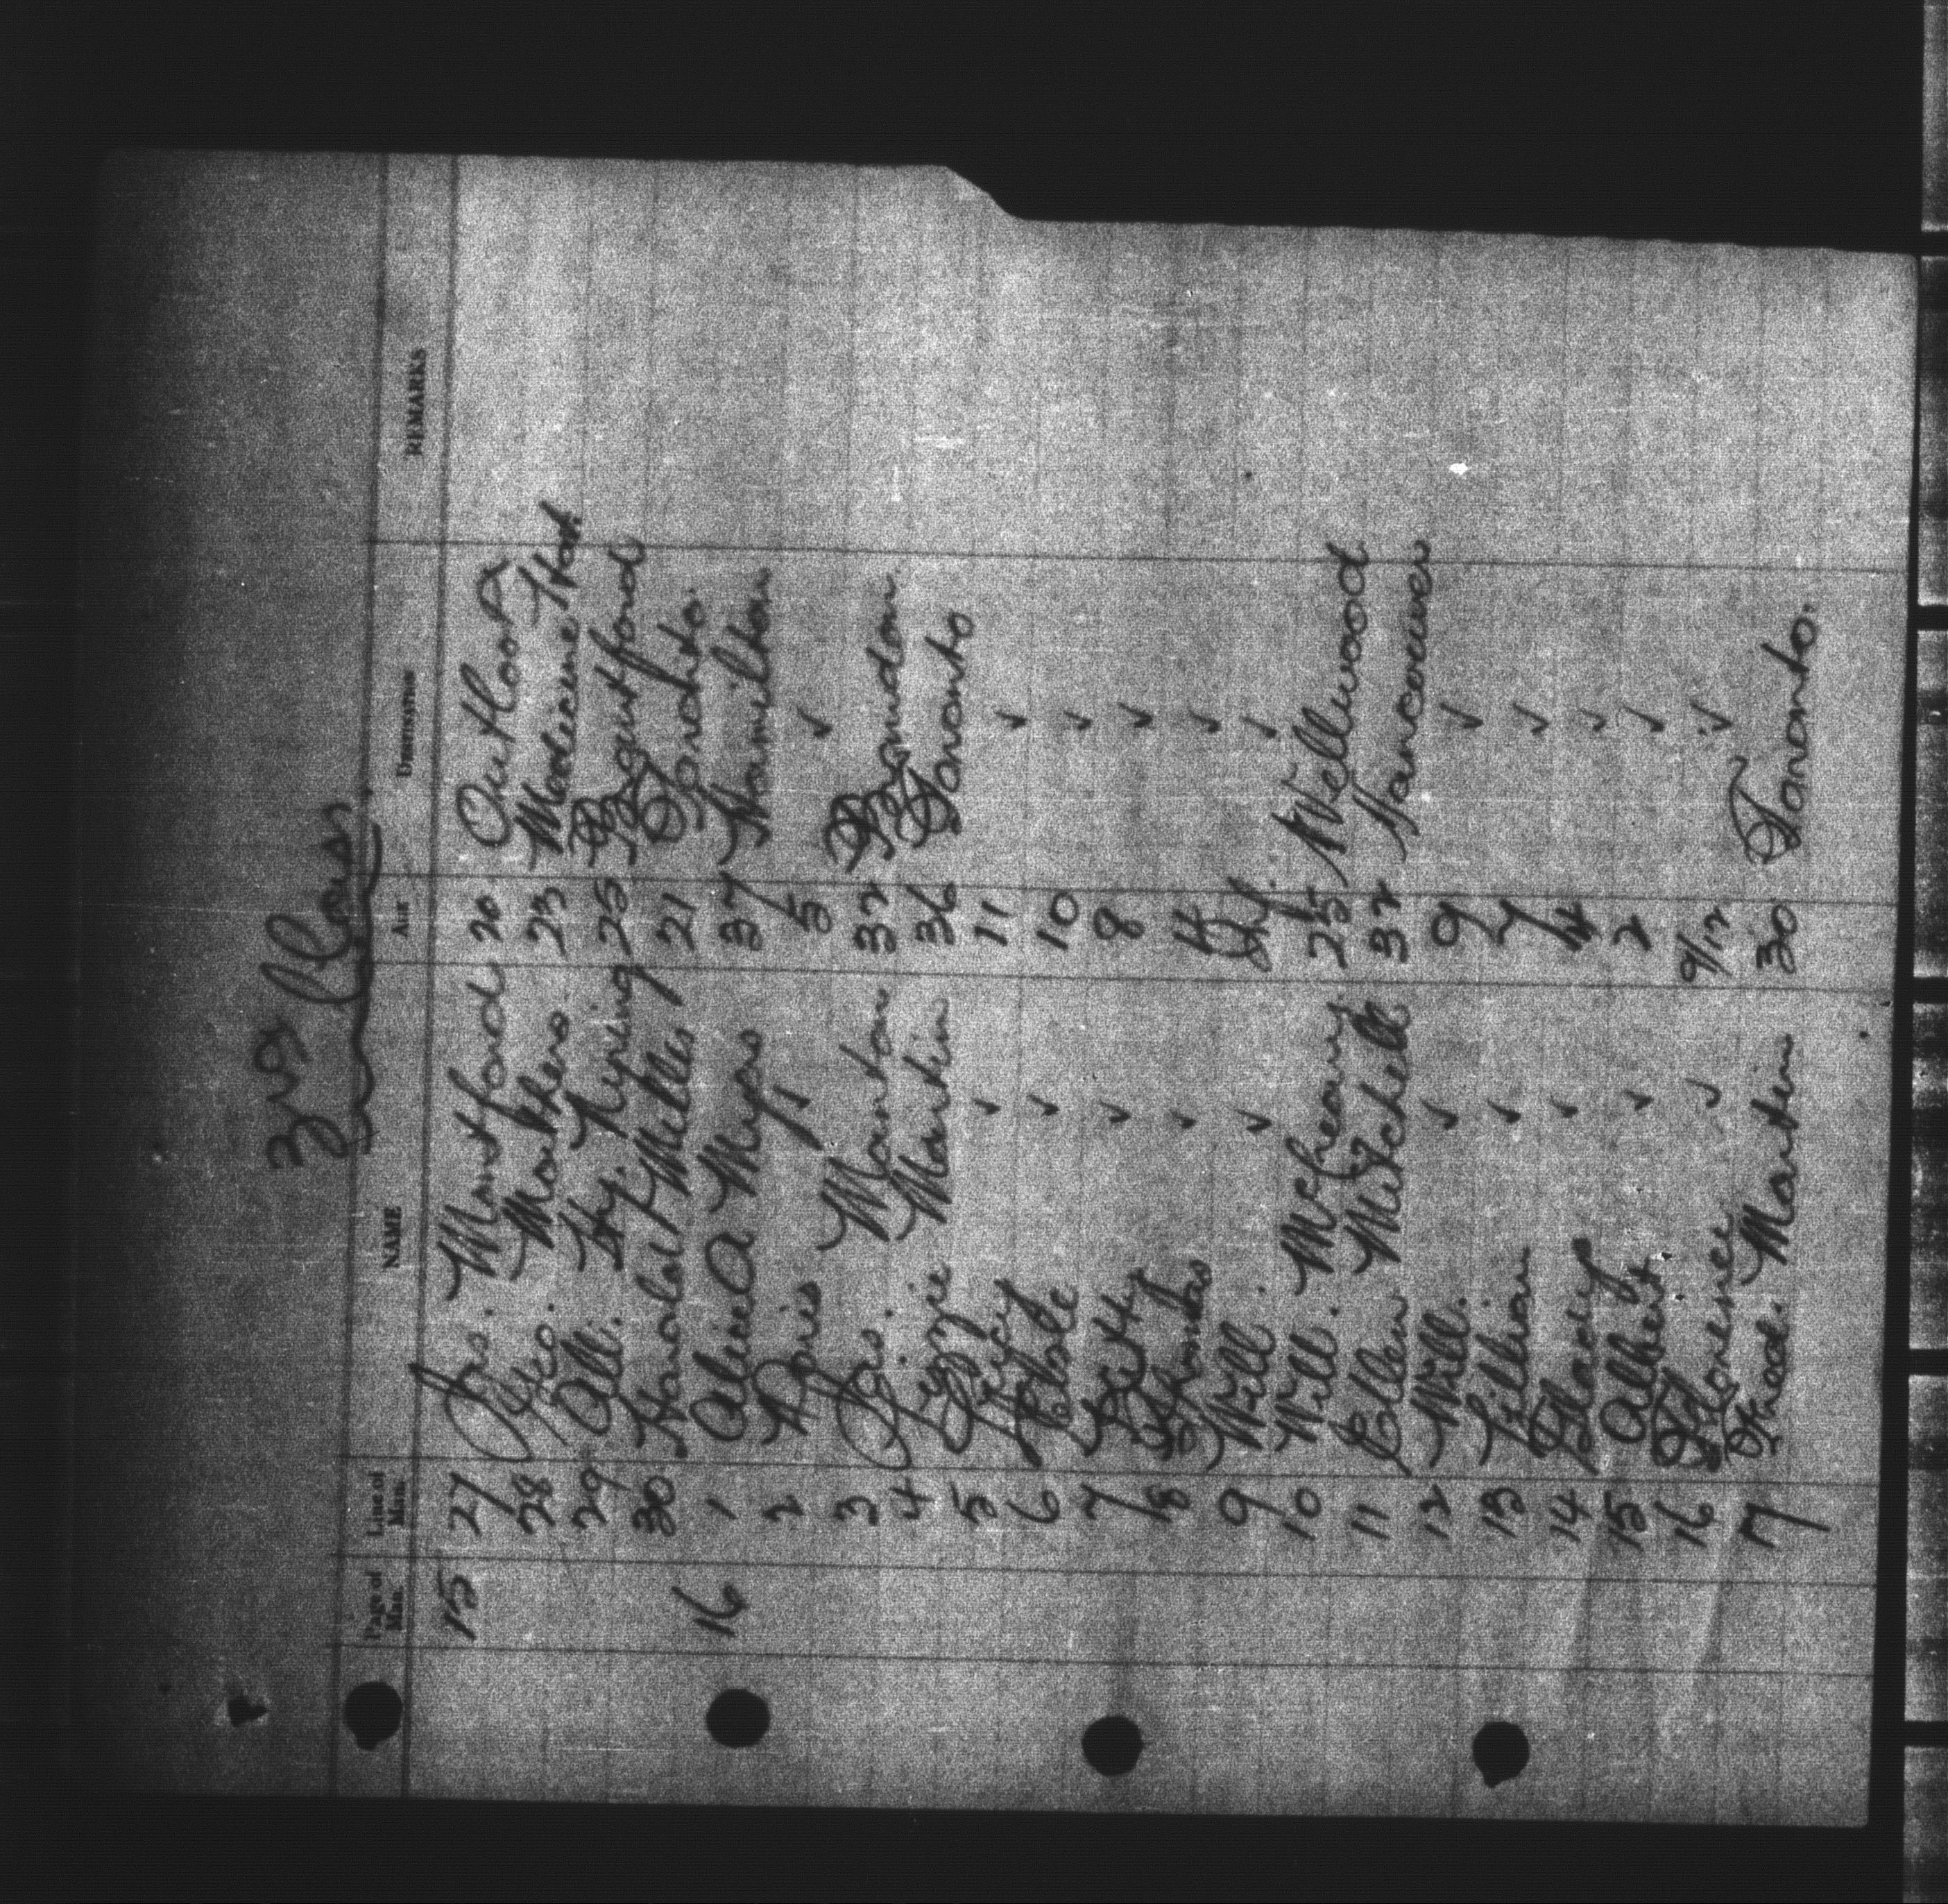 3rd Class
Page of Man. Line of Man. NAME AGE DESTINATION REMARKS
15 27 Jas. Montford 20 Outlook
28 Geo. Mathers 23 Medicine Hat.
29 Alf. Hy. 25 Brantford
30 Harold Miller 21 Toronto.
16 1 Alice A Myers 37 Hamilton
2 Doris ✓ 5 ✓
3 Jas. Manton 32 Brandon.
4 Lizzie Martin 36 Toronto
5 Lucy ✓ 11 ✓
6 ✓ 10 ✓
7 ✓ 8 ✓
8 ✓ 4 ✓
9 Will. ✓ Inf. ✓
10 Will. 25 Wellwood
11 Ellen Mitchell 32 Vancouver
12 Will. ✓ 9 ✓
13 Lillian ✓ 7 ✓
14 Gladys ✓ 4 ✓
15 Albert ✓ 2 ✓
16 Florence ✓ 9/12 ✓
17 Fred. Martin 30 Toronto.